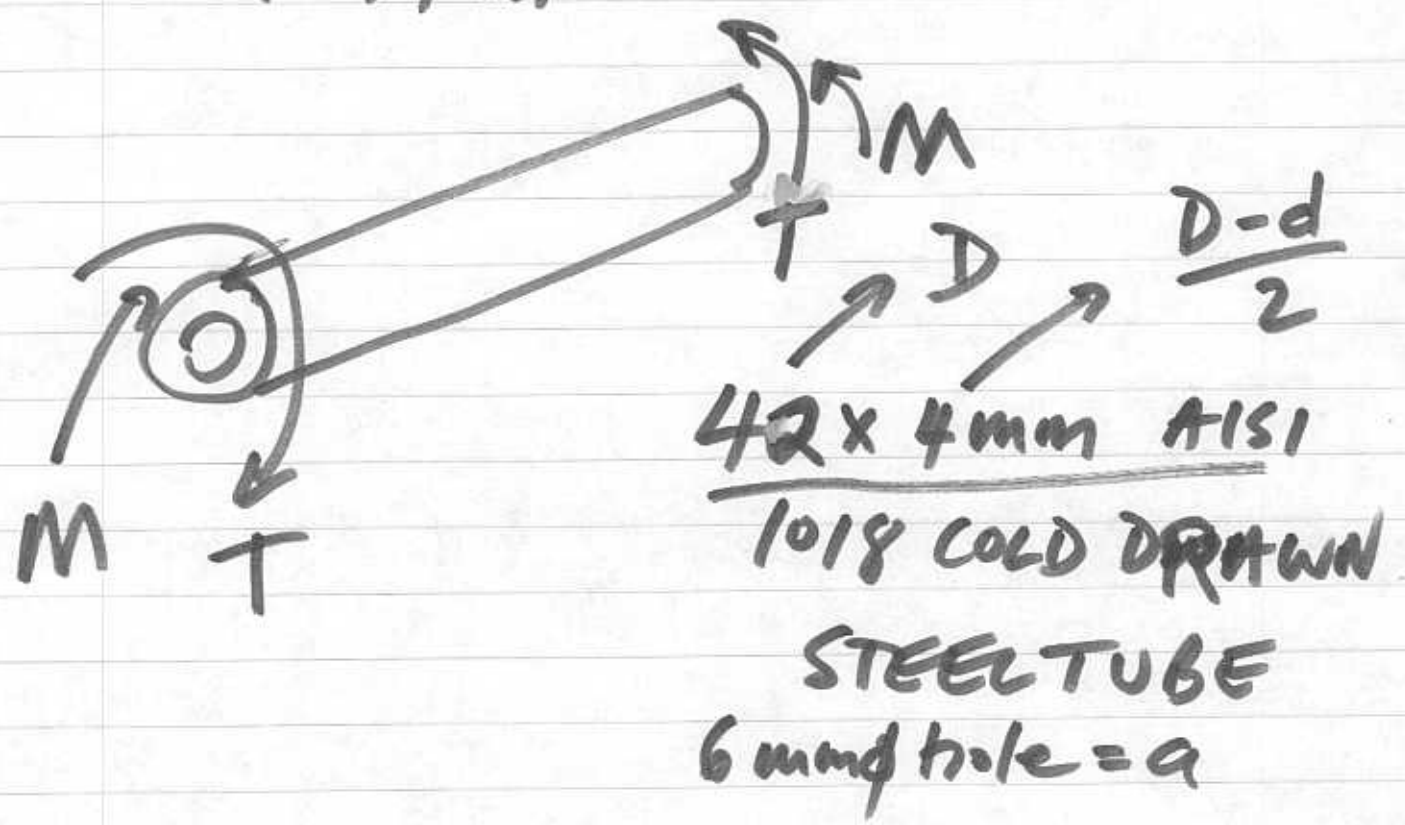 M
T
D
D-d
2
42 x 4mm AISI
1018 COLD DRAWN
STEEL TUBE
6 mmϕ hole = a
M T